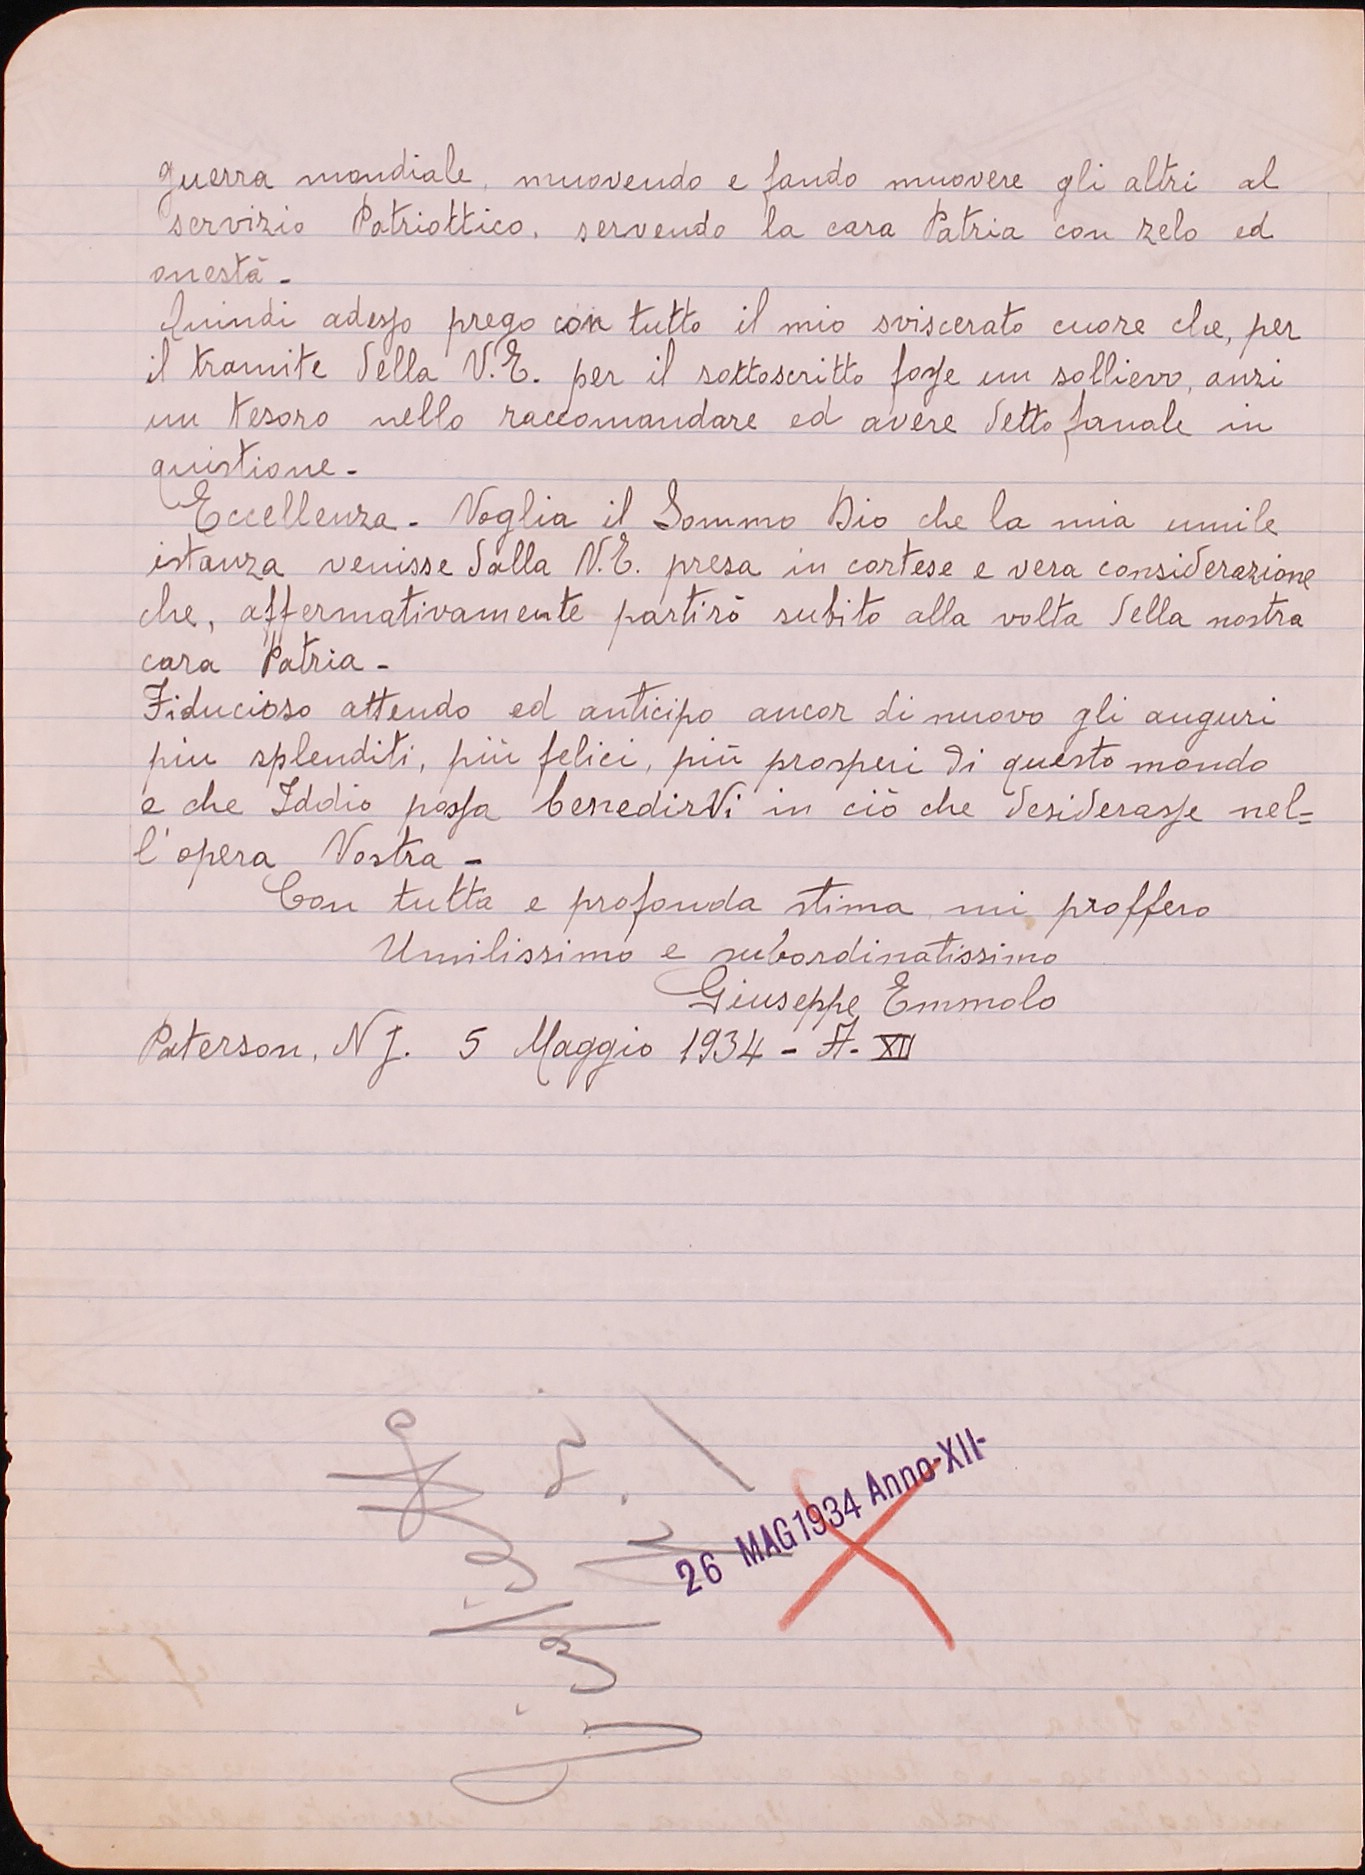 guerra mondiale, muovendo e fando muovere gli altri al
servizio Patriottico, servendo la cara Patria con zelo ed
onestà -
Quindi adesso prego con tutto il mio sviscerato cuore che, per
il tramite della V.E. per il sottoscritto fosse un sollievo, anzi
un tesoro nello raccomandare ed avere detto fanale in
quistione -
Eccellenza - Voglia il Sommo Dio che la mia umile
istanza venisse dalla V.E. presa in cortese e vera considerazione
che, affermativamente partirò subito alla volta della nostra
cara Patria -
Fiducioso attendo ed anticipo ancor di nuovo gli auguri
più splenditi, più felici, più prosperi di questo mondo
e che Iddio possa benedirVi in ciò che desiderasse nel=
l'opera Vostra -
Con tutta e profonda stima mi proffero
Umilissimo e subordinatissimo
Giuseppe Emmolo
Paterson, N J. 5 Maggio 1934 - A. XII
26 MAG 1934 Anno-XII-